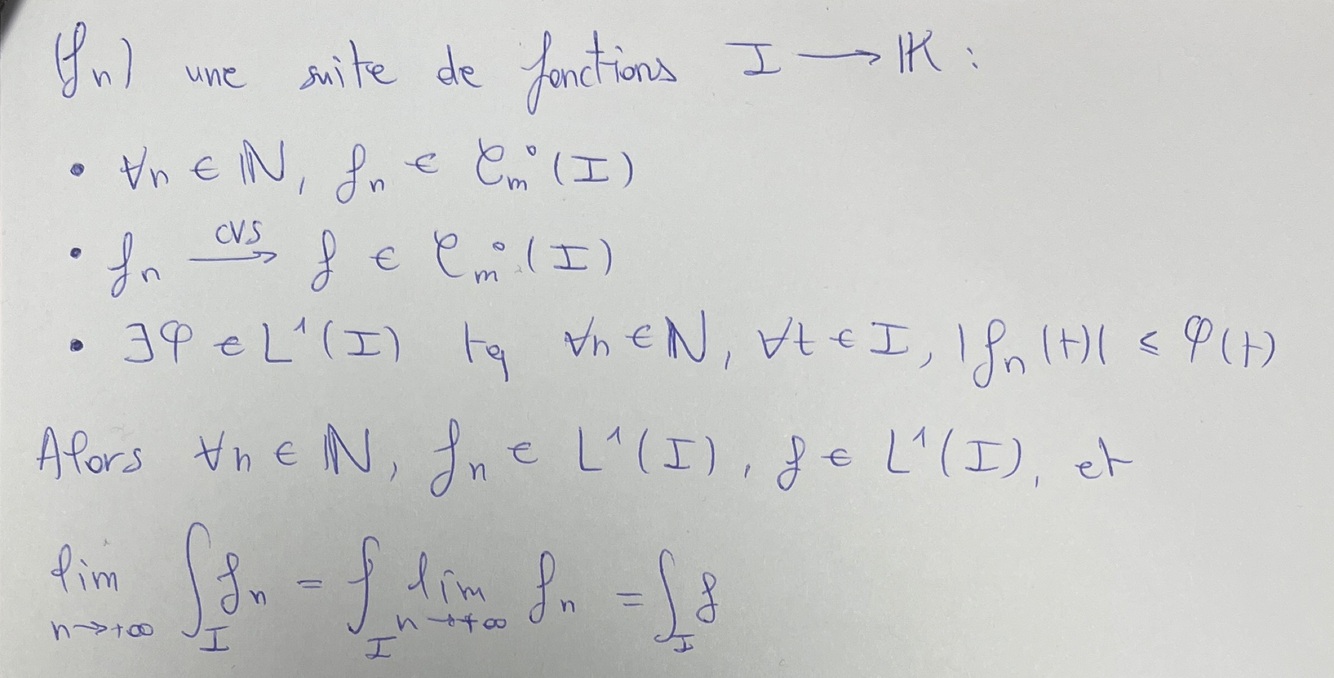 (fₙ) une suite de fonctions I ⟶ 𝕂 :
• ∀n ∈ ℕ, fₙ ∈ 𝒞ₘ⁰(I)
• fₙ —CVS→ f ∈ 𝒞ₘ⁰(I)
• ∃φ ∈ L¹(I) tq ∀n ∈ ℕ, ∀t ∈ I, |fₙ(t)| ≤ φ(t)
Alors ∀n ∈ ℕ, fₙ ∈ L¹(I), f ∈ L¹(I), et
lim_{n→+∞} ∫_I fₙ = ∫_I lim_{n→+∞} fₙ = ∫_I f